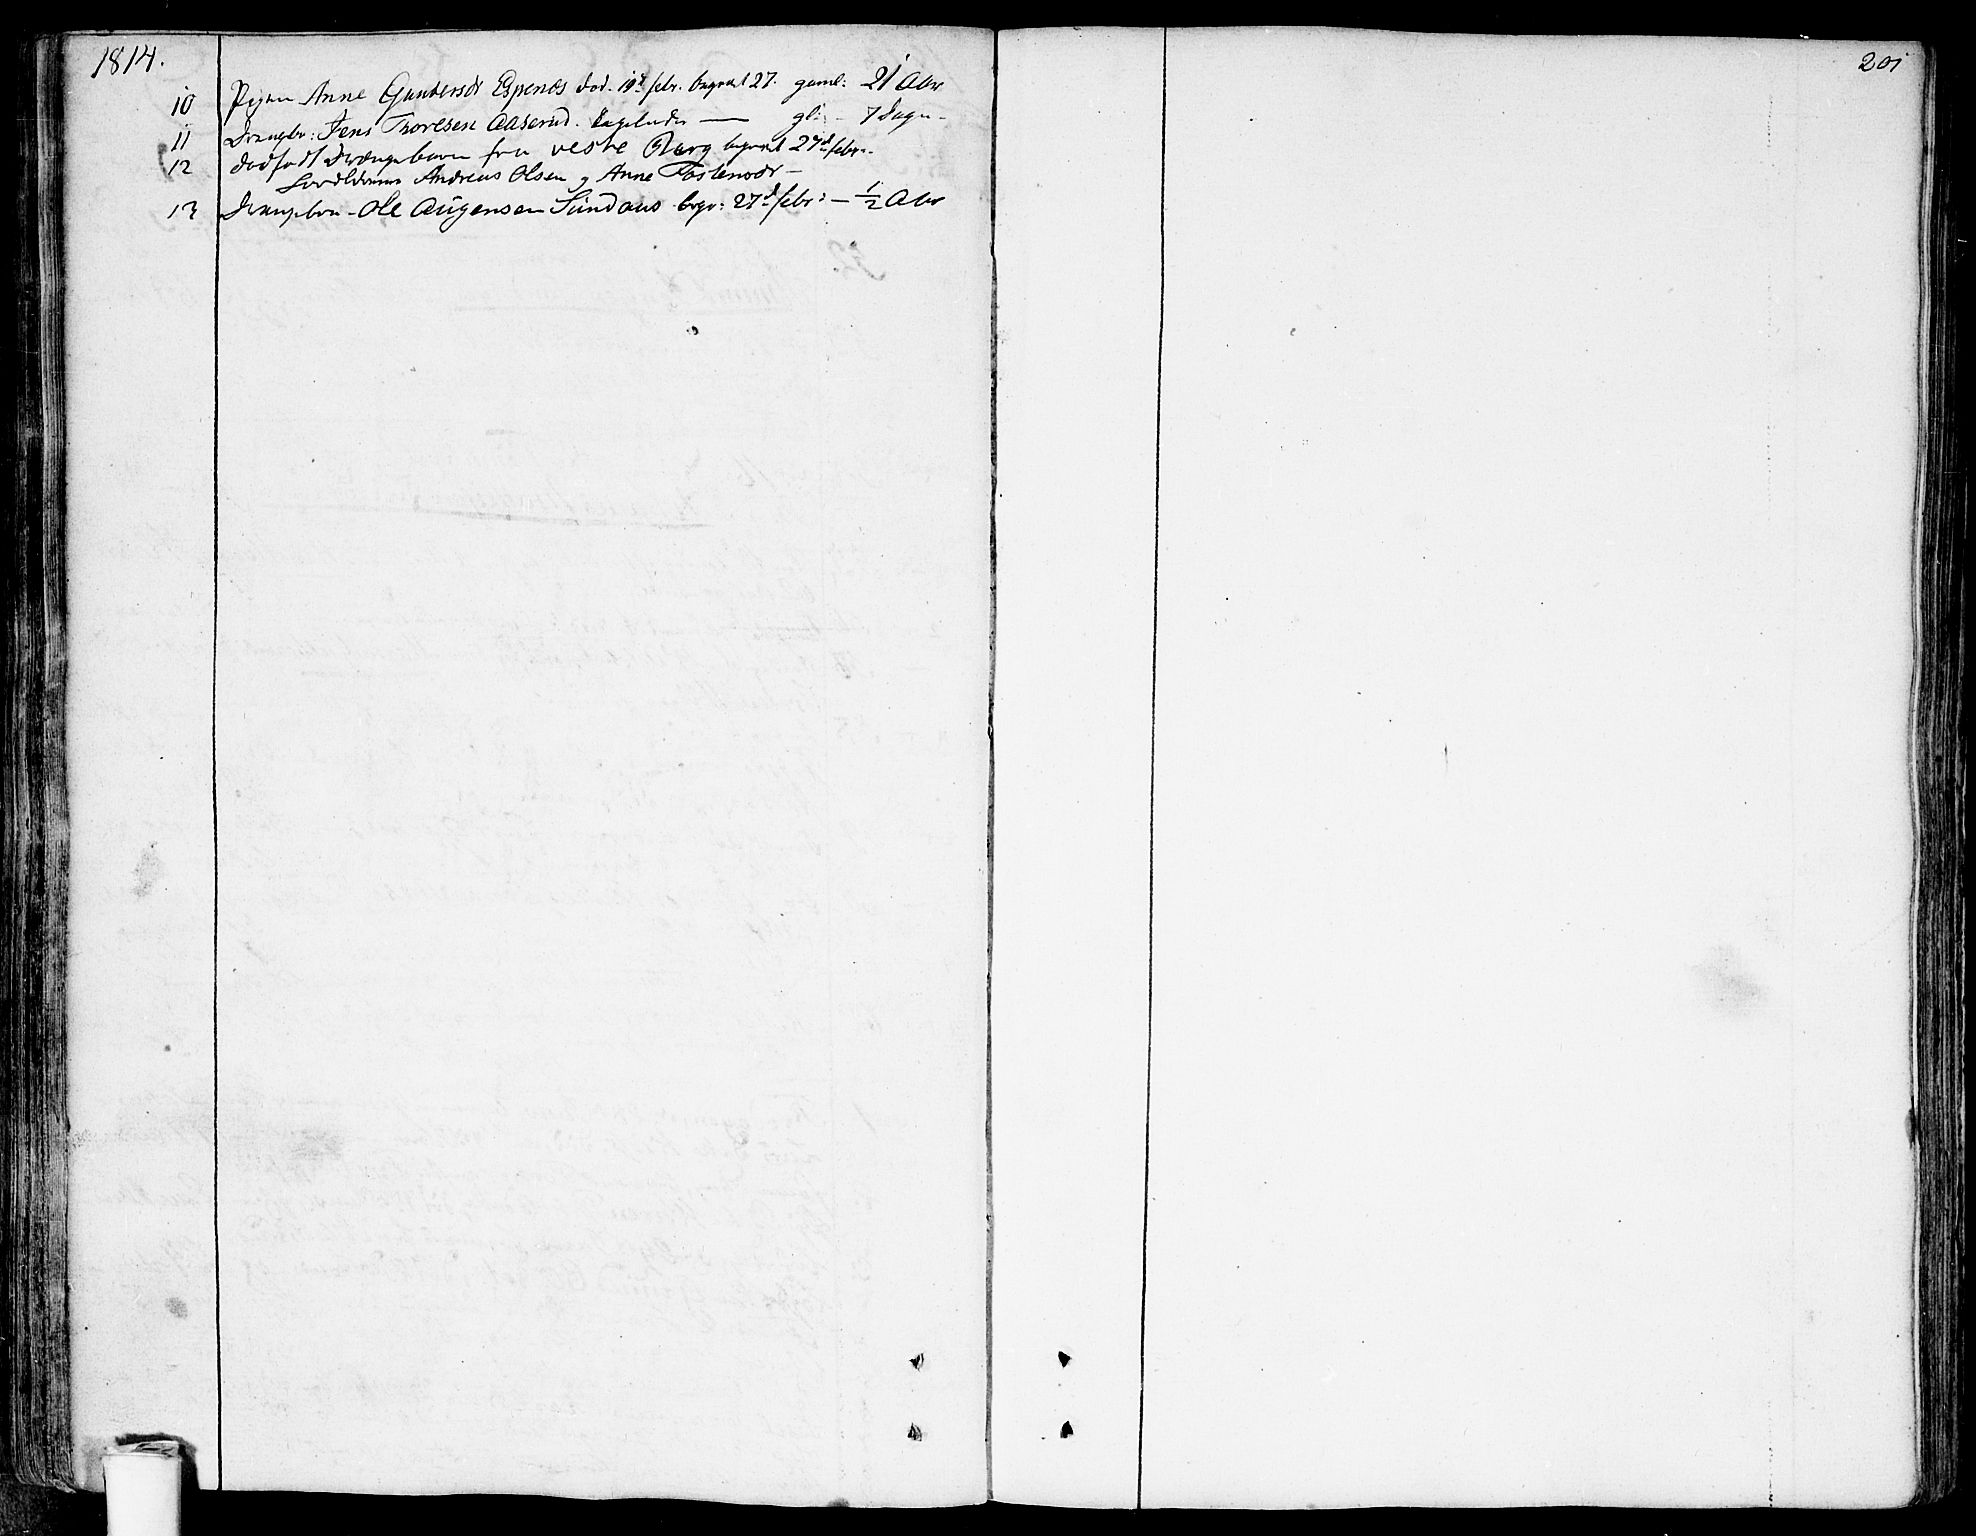 1814.
201
10 Pigen Anne Gundersdr Espenes død. 19d febr. begravet 27. gaml: 21 Aar
11 Drængebr: Jens Thoresen Aaserud. — gl: - 7 Dage -
12 dødfødt Drængebarn fra vestre Berg begravet 27d febr.
Forældrene Andreas Olsen og Anne Tostensdr -
13 Drængebrn - Ole Augensen Sundaas begr: 27d febr: - 1/2 Aar